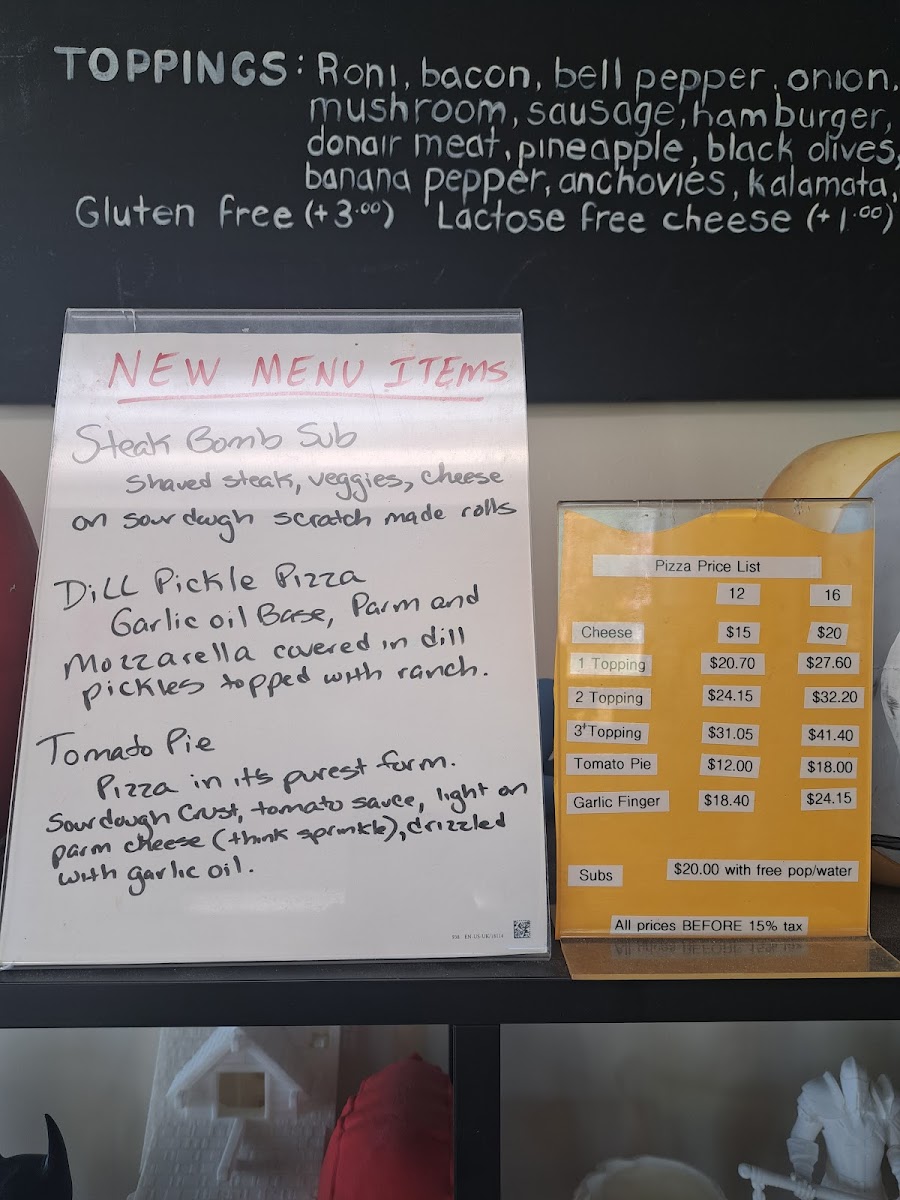 TOPPINGS: Roni, bacon, bell pepper, onion,
mushroom, sausage, hamburger,
donair meat, pineapple, black olives,
banana pepper, anchovies, kalamata,
Gluten free (+3.00) Lactose free cheese (+1.00)
NEW MENU ITEMS
Steak Bomb Sub
Shaved steak, veggies, cheese
on sourdough scratch made rolls
Dill Pickle Pizza
Garlic oil Base, Parm and
Mozzarella covered in dill
pickles topped with ranch.
Tomato Pie
Pizza in it's purest form.
Sourdough Crust, tomato sauce, light on
parm cheese (think sprinkle), drizzled
with garlic oil.
Pizza Price List
12 16
Cheese $15 $20
1 Topping $20.70 $27.60
2 Topping $24.15 $32.20
3+Topping $31.05 $41.40
Tomato Pie $12.00 $18.00
Garlic Finger $18.40 $24.15
Subs $20.00 with free pop/water
All prices BEFORE 15% tax